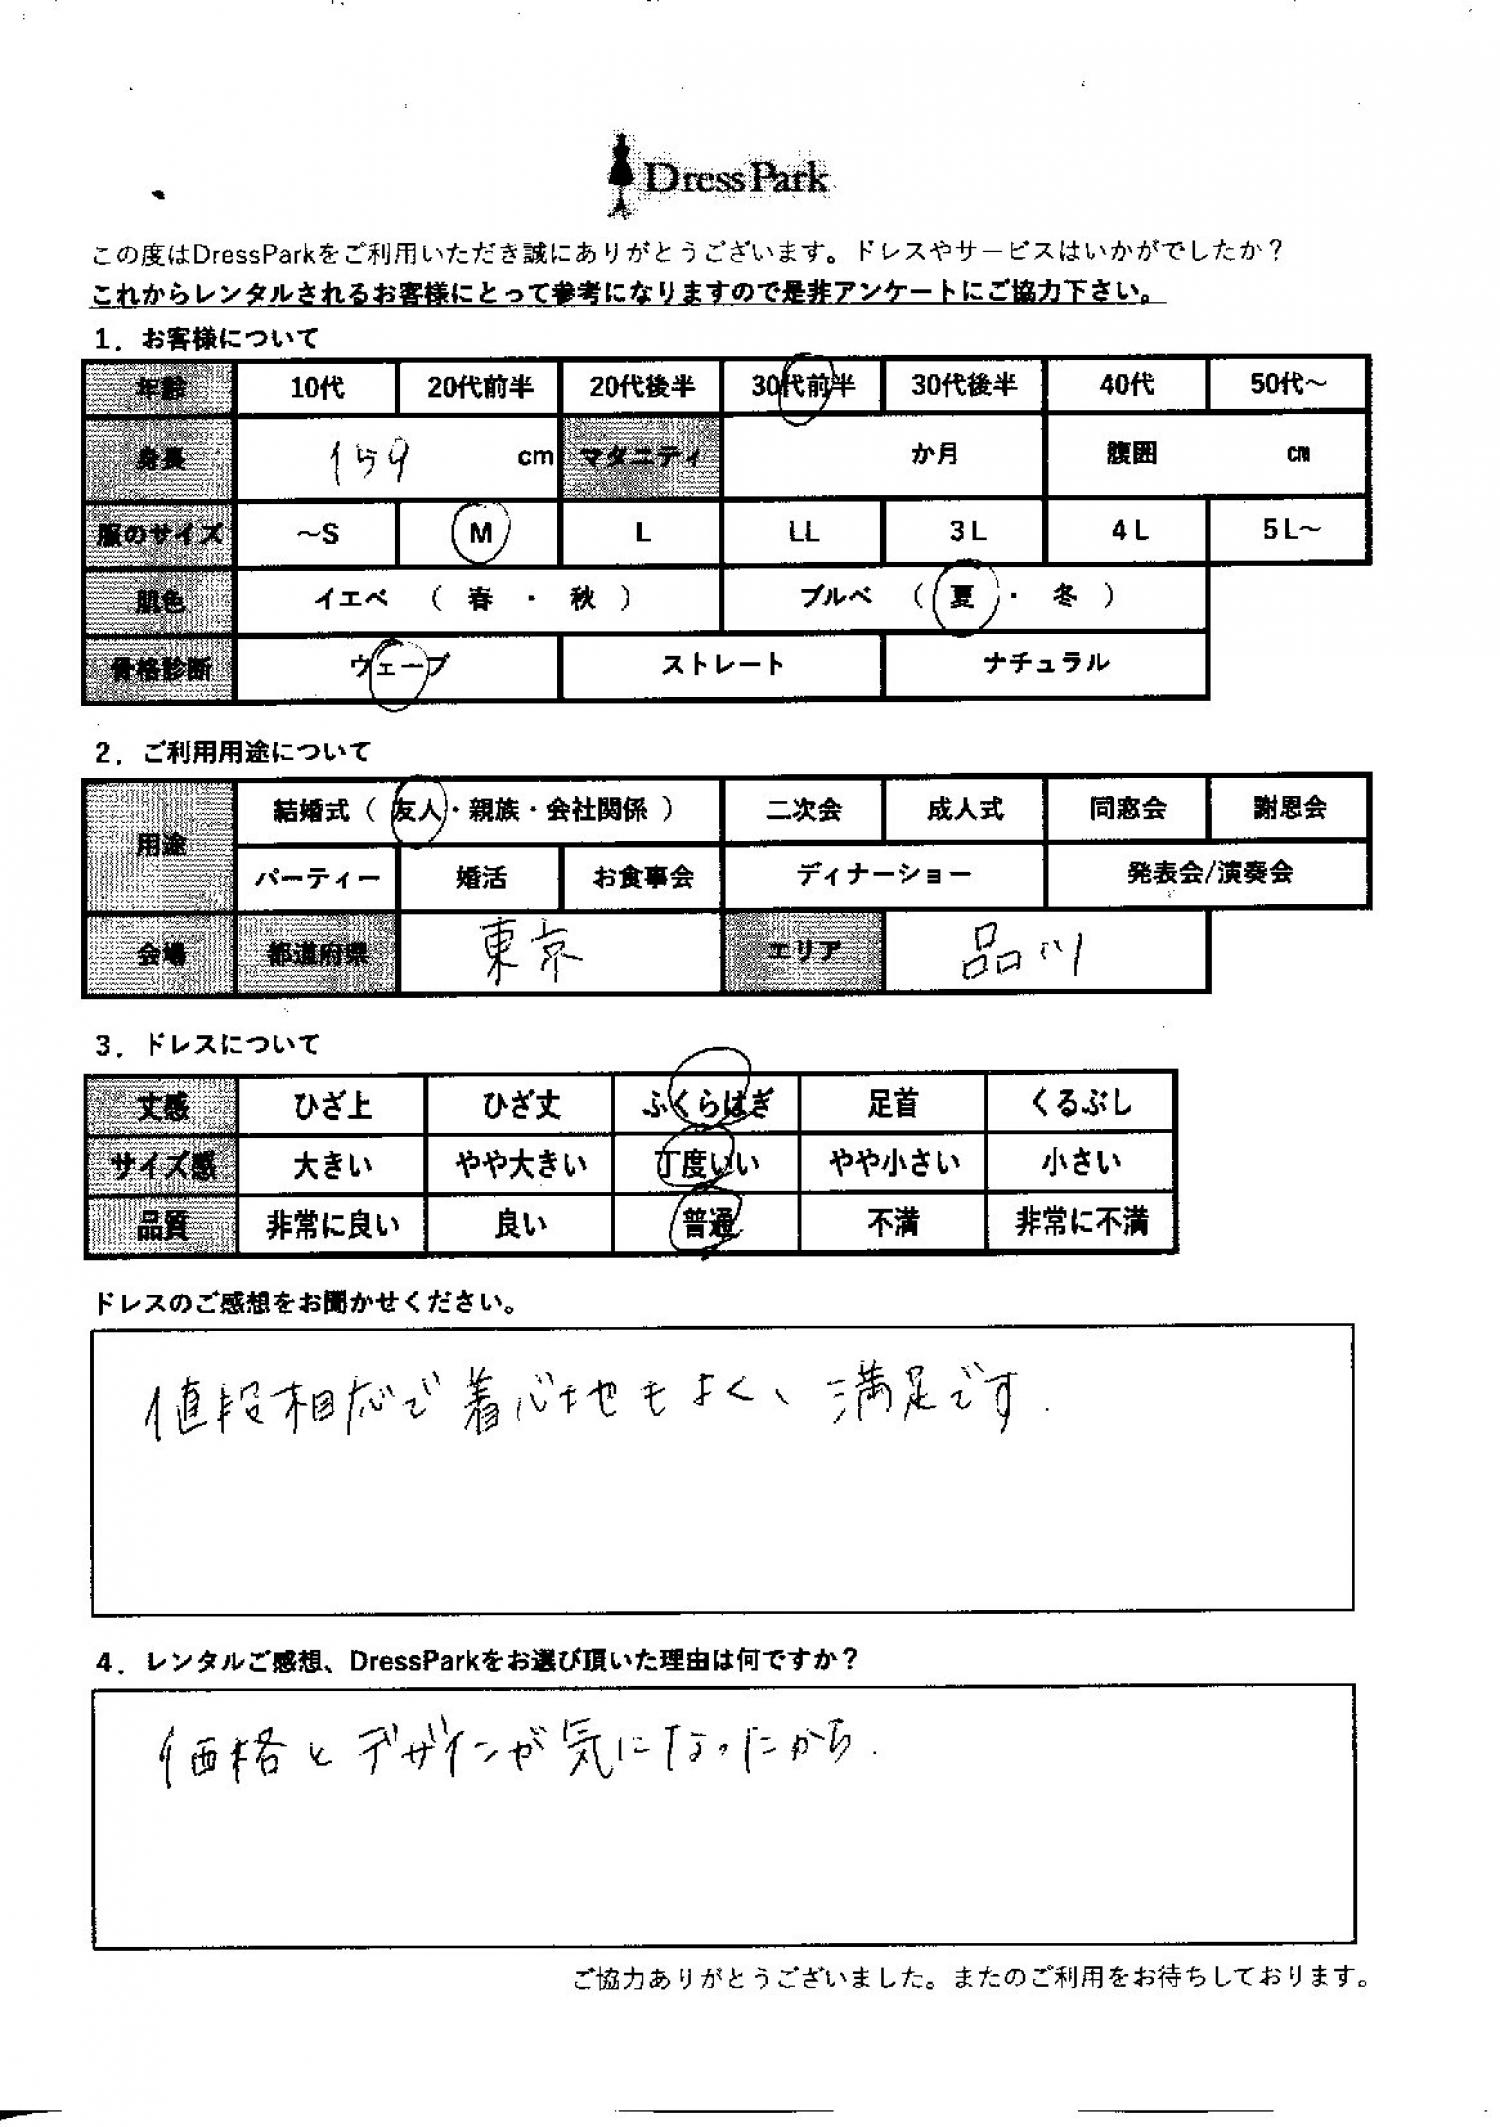 DressPark
この度はDressParkをご利用いただき誠にありがとうございます。ドレスやサービスはいかがでしたか？
これからレンタルされるお客様にとって参考になりますので是非アンケートにご協力下さい。
1．お客様について
年齢 10代 20代前半 20代後半 30代前半 30代後半 40代 50代～
身長 159 cm マタニティ か月 腹囲 cm
服のサイズ ～S M L LL 3L 4L 5L～
肌色 イエベ （ 春 ・ 秋 ） ブルベ （ 夏 ・ 冬 ）
骨格診断 ウェーブ ストレート ナチュラル
2．ご利用用途について
用途 結婚式（ 友人・親族・会社関係 ） 二次会 成人式 同窓会 謝恩会
パーティー 婚活 お食事会 ディナーショー 発表会/演奏会
会場 都道府県 東京 エリア 品川
3．ドレスについて
丈感 ひざ上 ひざ丈 ふくらはぎ 足首 くるぶし
サイズ感 大きい やや大きい 丁度いい やや小さい 小さい
品質 非常に良い 良い 普通 不満 非常に不満
ドレスのご感想をお聞かせください。
値段相応で着心地もよく、満足です.
4．レンタルご感想、DressParkをお選び頂いた理由は何ですか？
価格とデザインが気になったから.
ご協力ありがとうございました。またのご利用をお待ちしております。